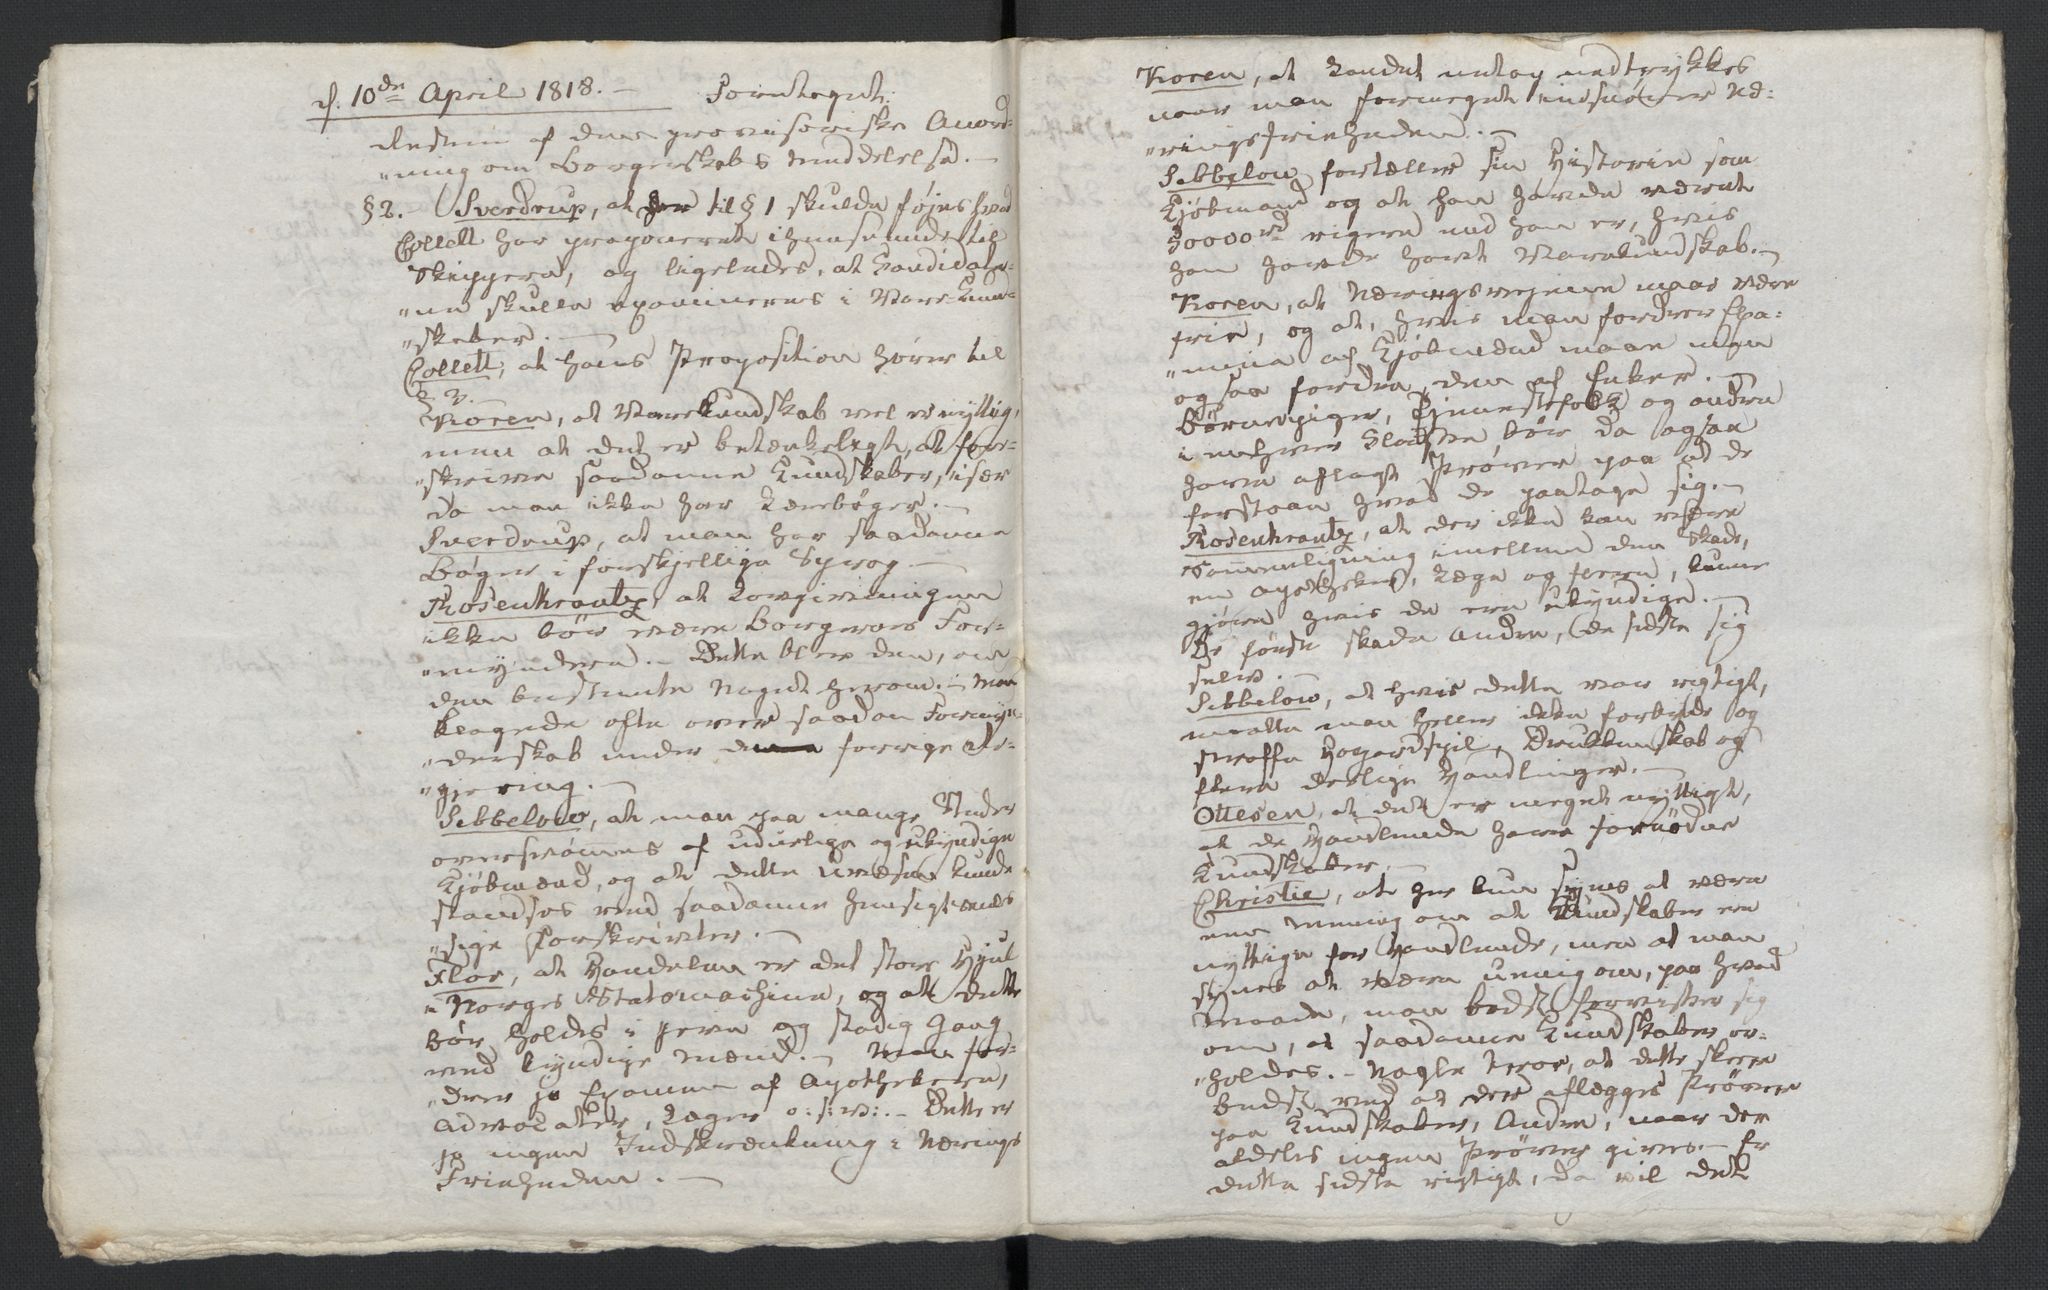 d. 10de April 1818. — Foretaget:
Resten af den provisoriske Anord-
„ning om Borgerskabs Meddelelse. —
§ 2. – Sverdrup, at her til § 1 skulde føjes hvad
Collett har proponeret i henseende til
Skippere, og ligeledes, at Candidater-
„ne skulle examineres i Vare-Kund-
„skaber. —
Collett, at hans Proposition hører til
§ 2. —
Koren, at Varekundskab vel er nyttig,
men at det er betænkeligt, at for-
„skrive saadanne Kundskaber, især
da man ikke har Lærebøger. —
Sverdrup, at man har saadanne
Bøger i forskjellige Sprog. —
Rosenkrantz, at Lovgivningen
ikke bør være Borgernes For-
„myndere. – Dette blev den, om
den bestemte Noget herom. – Man
klagede ofte over saadan Formyn-
„derskab under den forrige Re-
„gjering. —
Sibbelow, at man paa mange Steder
oversvømmes af uduelige og ukyndige
Kjøbmænd, og at dette Uvæsen kunde
standses ved saadanne hensigtsmæs-
„sige Forskrivter. —
Flor, at Handelen er det store Hjul
i Norges Statsmachine, og at dette
bør holdes i jevn og stadig Gang
ved kyndige Mænd. – Man for-
„drer jo Examen af Apothekere,
Advocater, Læger o: s: v: – Dette er
jo ingen Indskrænkning i Nærings
Friheden. —
Koren, at Landet netop nedtrykkes
naar man formeget indsnører Næ-
„ringsfriheden. —
Sibbelow fortæller sin Historie som
Kjøbmand og at han havde været
30000rd rigere end han er, hvis
han havde havt Varekundskab. —
Koren, at Næringsvejene maae være
frie, og at, hvis man fordrer Exa-
„mina af Kjøbmænd maae man
ogsaa fordre den af Enker. —
Børnepiger, Tjenestefolk og andre
i enhver Klasse bør da ogsaa
have aflagt Prøver paa at de
forstaae hvad de paatage sig. —
Rosenkrantz, at der ikke kan være
Sammenligning imellem den Skade,
en Apotheker, Læge og flere, kunne
gjøre hvis de ere ukyndige. —
De første skade Andre, de sidste sig
selv. —
Sibbelow, at hvis dette var rigtigt,
maatte man heller ikke forbyde og
straffe Hazardspil, Drukkenskab og
flere deslige Handlinger. —
Ottesen, at det er meget nyttigt,
at de Handlende have fornødne
Kundskaber. —
Christie, at her kun synes at være
een Mening om at Kundskaber ere
nyttige for Handlende, men at man
synes at være uenig om, paa hvad
Maade, man bedst forvisser sig
om, at saadanne Kundskaber er-
„holdes. – Nogle troe, at dette skeer
bedst ved at der aflægges Prøver
paa Kundskaber, Andre, naar der
aldeles ingen Prøver gives. – Er
dette sidste rigtigt, da vil det